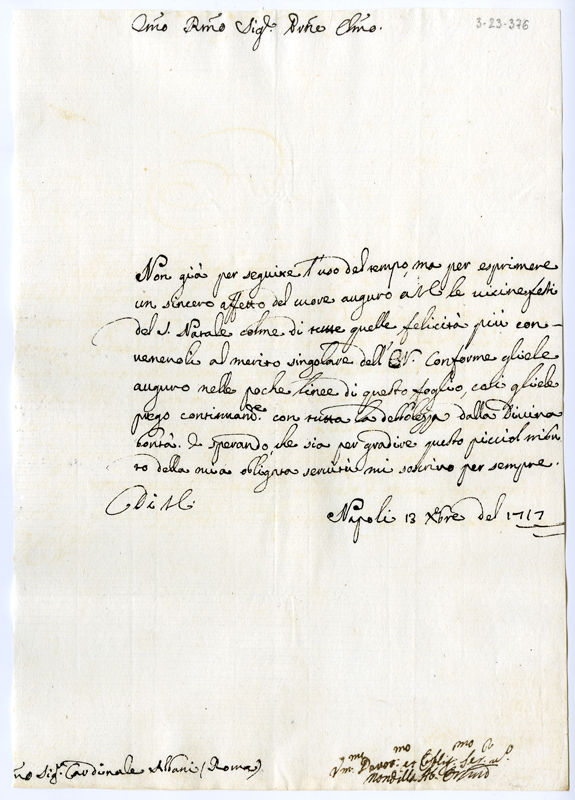 3-23-376
Emo Rmo Sig.r Pne Clmo.
Non già per seguire l'uso del tempo ma per esprimere
un sincero affetto del cuore auguro a VE le vicine festi
del S. Natale colme di tutte quelle felicità più con-
venevoli al merito singolare dell' EV. Conforme gliele
auguro nelle poche linee di questo foglio, così gliele
prego continuam.te con tutta la debolezza dalla Divina
bontà. E sperando che sia per gradire questo picciol tribu
to della mia obligata servitù mi soscrivo per sempre.
Di VE.
Napoli 13 Xbre del 1717
mo Sig.r Cardinale Albani (Roma)
Vm. Devo.mo et Oblig.mo